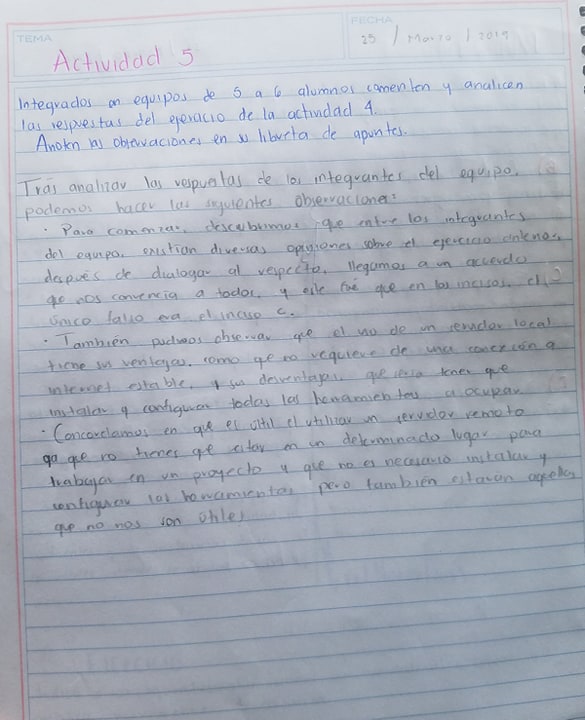 TEMA
FECHA
25 / Marzo / 2019
Actividad 5
Integrados en equipos de 5 a 6 alumnos comenten y analicen
las respuestas del ejercicio de la actividad 4.
Anoten las observaciones en su libreta de apuntes.
Tras analizar las respuestas de los integrantes del equipo,
podemos hacer las siguientes observaciones:
· Para comenzar, descubrimos que entre los integrantes
del equipo, existian diversas opiniones sobre el ejercicio anterior,
después de dialogar al respecto, llegamos a un acuerdo
que nos convencia a todos, y este fue que en los incisos, el
único falso era el inciso c.
· También pudimos observar que el uso de un servidor local
tiene sus ventajas, como que no requiere de una conexión a
internet estable, y sus desventajas, que seria tener que
instalar y configurar todas las herramientas a ocupar.
· Concordamos en que es útil el utilizar un servidor remoto
ya que no tienes que estar en un determinado lugar para
trabajar en un proyecto y que no es necesario instalar y
configurar las herramientas, pero también estarán aquellas
que no nos son útiles